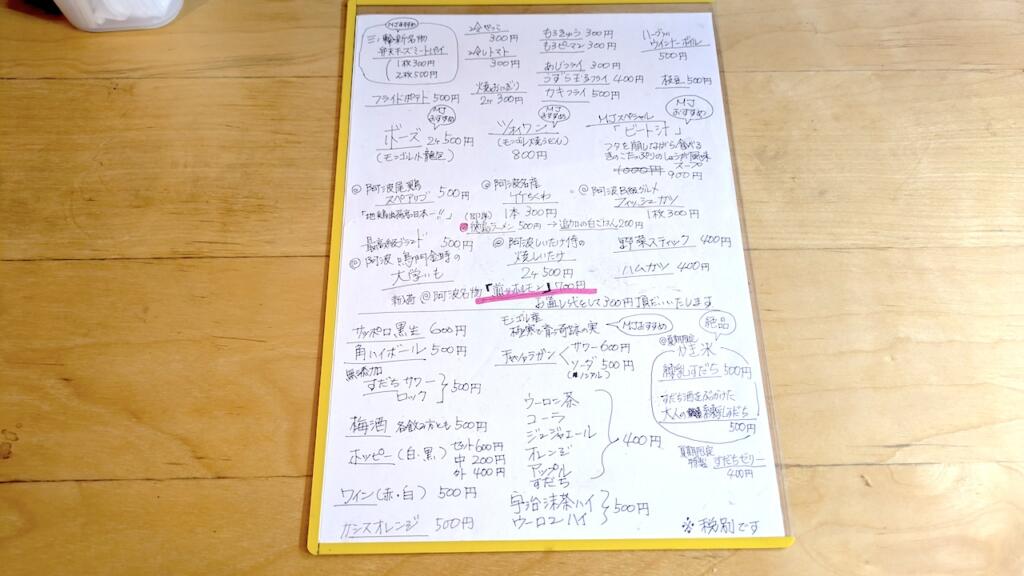 MJおすすめ
三ノ輪新名物
弁天チーズミートパイ
1枚300円
2枚500円
フライドポテト 500円
冷やっこ
300円
冷しトマト
300円
焼おにぎり
2ケ 300円
もろきゅう 300円
もろピーマン 300円
あじフライ 300円
うずら玉フライ 400円
カキフライ 500円
ハーブ
ウインナーボイル
500円
枝豆 500円
MJおすすめ
ボーズ 2ケ500円
(モンゴル小籠包)
MJおすすめ
ツォイワン
(モンゴル焼うどん)
800円
MJおすすめ
MJスペシャル
「ビート汁」
フタを崩しながら食べる
きのこたっぷりのしょうが風味
スープ
1000円
900円
@阿波尾鶏
スペアリブ 500円
「地鶏出荷日本一!!」
@阿波名産
竹ちくわ
1本 300円
@阿波B級グルメ
フィッシュカツ
1枚 300円
@徳島ラーメン 500円 → 追加の白ごはん200円
最高級ブランド 500円
@阿波鳴門金時の
大学いも
@阿波しいたけ侍の
焼しいたけ
2ケ 500円
野菜スティック 400円
ハムカツ 400円
新着 @阿波名物「煎りホルモン」700円
お通し代として300円頂だいいたします
サッポロ黒生 600円
角ハイボール 500円
無添加
すだち サワー
ロック
500円
梅酒 各飲み方とも 500円
ホッピー (白・黒) セット 600円
中 200円
外 400円
ワイン(赤・白) 500円
カシスオレンジ 500円
モンゴル産
極寒で育つ奇跡の実
MJおすすめ
チャツァルガン
サワー 600円
ソーダ 500円
(ノンアル)
ウーロン茶
コーラ
ジンジャエール
オレンジ
アップル
すだち
400円
宇治抹茶ハイ
ウーロンハイ
500円
絶品
@夏期限定
かき氷
練乳すだち 500円
すだち酒をぶっかけた
大人の練乳すだち
500円
夏期限定
特製 すだちゼリー
400円
※税別です